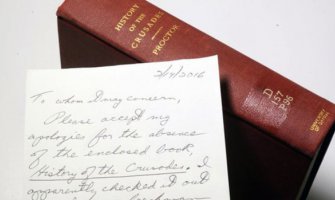 HISTORY
OF THE
CRUSADES
PROCTOR
D
157
P96
2/4/2016
To whom it may concern,
Please accept my
apologies for the absence
of the enclosed book,
History of the Crusades. I
apparently checked it out